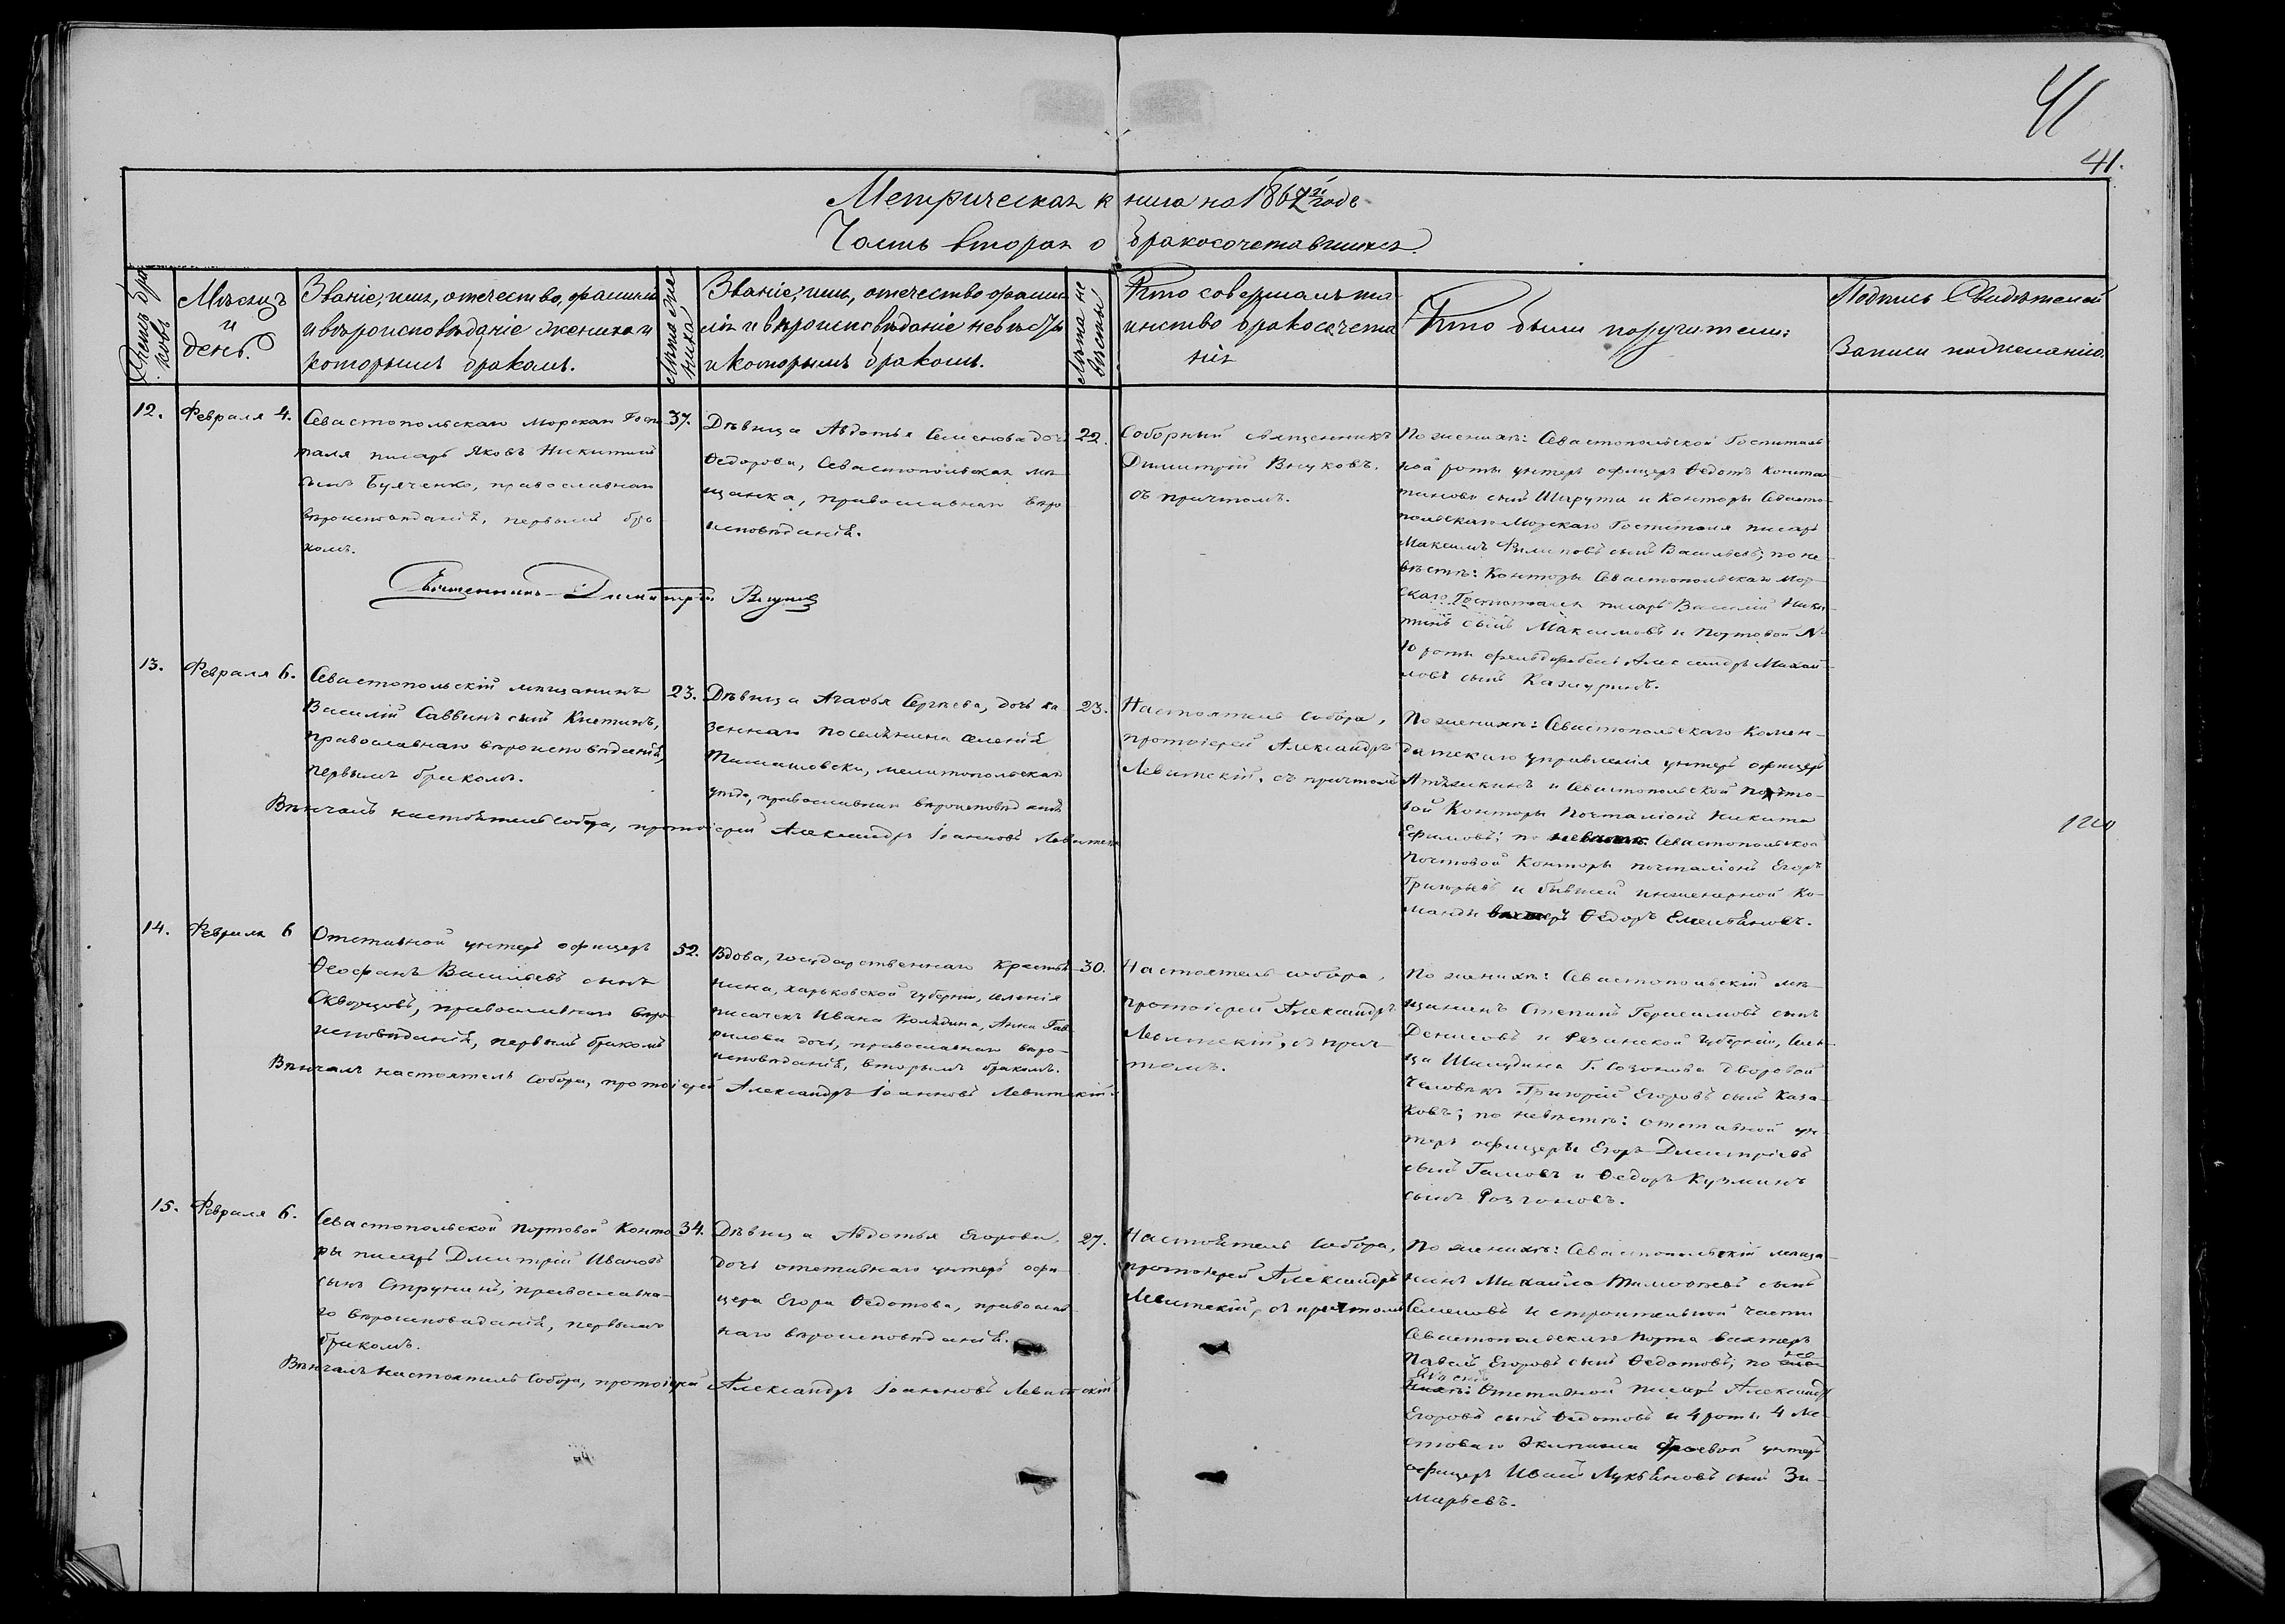 41
41.
Метрическая книга на 1867й годъ
Часть вторая о бракосочетавшихся.
Счетъ браковъ
Мѣсяцъ
и
день.
Званіе, имя, отечество, фамилія
и вѣроисповѣданіе жениха и
которымъ бракомъ.
Лѣта жениха
Званіе, имя, отечество фами-
лія и вѣроисповѣданіе невѣсты
и которымъ бракомъ.
Лѣта невѣсты
Кто совершалъ та-
инство бракосочета
нія
Кто были поручители:
Подпись Свидѣтелей
Записи по желанію.
12.
Февраля 4.
Севастопольскаго Морскаго Госпи
таля писарь Яковъ Никитинъ
сынъ Булченко, православнаго
вѣроисповѣданія, первымъ бра
комъ.
37.
Дѣвица Авдотья Семенова дочь
Ѳедорова, Севастопольская мѣ
щанка, православнаго вѣро
исповѣданія.
22.
Соборный священникъ
Димитрій Внуковъ.
съ причтомъ.
По женихѣ: Севастопольской Госпиталь
ной роты унтеръ офицеръ Ѳедотъ Констан
тиновъ сынъ Шкрута и Конторы Севасто-
польскаго Морскаго Госпиталя писарь
Максимъ Филиповъ сынъ Васильевъ; по не-
вѣстѣ: Конторы Севастопольскаго Мор-
скаго Госпиталя писарь Василій Ники-
тинъ сынъ Максимовъ и Портовой №
10 роты фельдфебель Александръ Михай-
ловъ сынъ Кажуринъ.
Священникъ Димитрій Внуковъ
13.
Февраля 6.
Севастопольскій мѣщанинъ
Василій Саввинъ сынъ Кметинъ,
православнаго вѣроисповѣданія,
первымъ бракомъ.
23.
Дѣвица Агафья Сергѣева, дочь ка
зеннаго поселянина селенія
Тимашовски, мелитопольскаго
уѣзда, православнаго вѣроисповѣданія
23.
Настоятель собора,
протоіерей Александръ
Левитскій, съ причтомъ
По женихѣ: Севастопольскаго Комен-
датскаго управленія унтеръ офицеръ
и Севастопольской Почто-
вой Конторы Почталіонъ Никита
Ефимовъ; по невѣстѣ: Севастопольской
Почтовой Конторы почталіонъ Егоръ
Григорьевъ и бывшей инженерной Ко-
манды вахтеръ Ѳедоръ Емельяновъ.
Вѣнчалъ настоятель собора, протоіерей Александръ Іоанновъ Левитскій
14.
Февраля 6
Отставной унтеръ офицеръ
Ѳеофанъ Васильевъ сынъ
Скворцовъ, православнаго вѣро
исповѣданія, первымъ бракомъ
52.
Вдова, государственнаго крестья-
нина, харьковской губерніи, селенія
писачекъ Ивана Колядина, Анна Гав
рилова дочь, православнаго вѣро-
исповѣданія, вторымъ бракомъ.
30.
Настоятель собора,
протоіерей Александръ
Левитскій, съ прич-
томъ.
По женихѣ: Севастопольскій мѣ-
щанинъ Степанъ Герасимовъ сынъ
Денисовъ и Рязанской губерніи, сель-
ца Г. Созонова дворовой
человѣкъ Григорій Егоровъ сынъ Каза-
ковъ; по невѣстѣ: отставной ун-
теръ офицеры Егоръ Дмитріевъ
сынъ Гамовъ и Ѳедоръ Кузминъ
сынъ Розгоновъ.
Вѣнчалъ настоятель Собора, протоіерей Александръ Іоанновъ Левитскій
15.
Февраля 6.
Севастопольской Портовой Конто
ры писарь Дмитрій Ивановъ
сынъ Струнинъ, православна-
го вѣроисповѣданія, первымъ
бракомъ.
34.
Дѣвица Авдотья Егорова,
дочь отставнаго унтеръ офи-
цера Егора Ѳедотова, православ-
наго вѣроисповѣданія.
27.
Настоятель собора,
протоіерей Александръ
Левитскій, съ причтомъ
По женихѣ: Севастопольскій мѣща-
нинъ Михайло Тимофеевъ сынъ
Семеновъ и строительной части
Севастопольскаго порта вахтеръ
Павелъ Егоровъ сынъ Ѳедотовъ; по нев
ѣстѣ: Отставной писарь Александръ
Егоровъ сынъ Ѳедотовъ и 4 роты 4 Ла-
стоваго Экипажа строевой унтеръ
офицеръ Иванъ Лукьяновъ сынъ Зи-
марьевъ.
Вѣнчалъ настоятель Собора, протоіерей Александръ Іоанновъ Левитскій